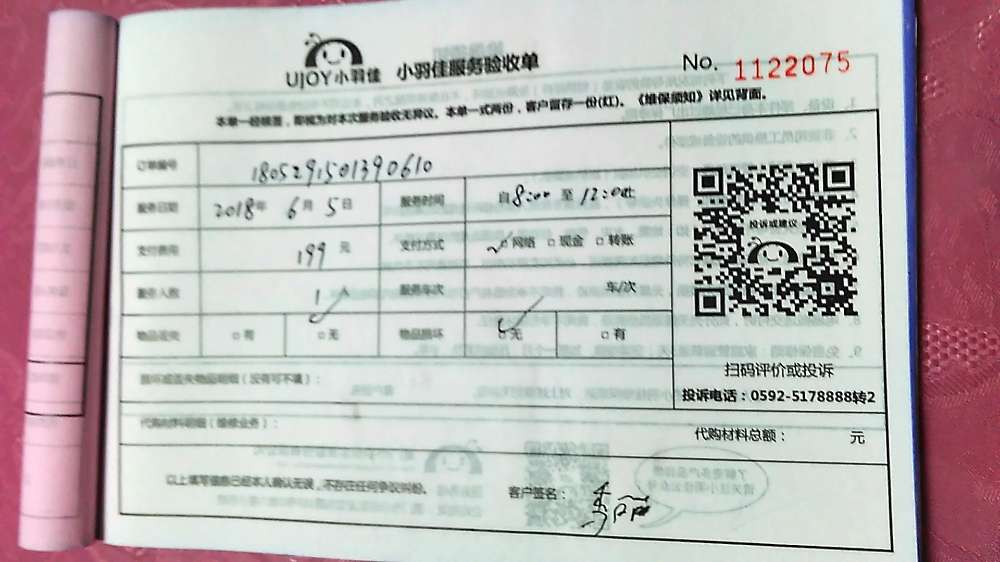 UJOY小羽佳 小羽佳服务验收单 No. 1122075
本单一经核签，即视为对本次服务验收无异议。本单一式两份，客户留存一份(红)。《维保须知》详见背面。
订单编号 1805291501390610
服务日期 2018年 6月 5日 服务时间 自8:00 至 12:00止
支付费用 199 元 支付方式 网络 现金 转账
服务人数 1 人 服务车次 车/次
物品丢失 有 无 物品损坏 无 有
损坏或丢失物品明细（没有可不填）：
代购材料明细（维修业务）：
代购材料总额： 元
以上填写信息已经本人确认无误，不存在任何争议纠纷。
客户签名：
投诉或建议
扫码评价或投诉
投诉电话：0592-5178888转2